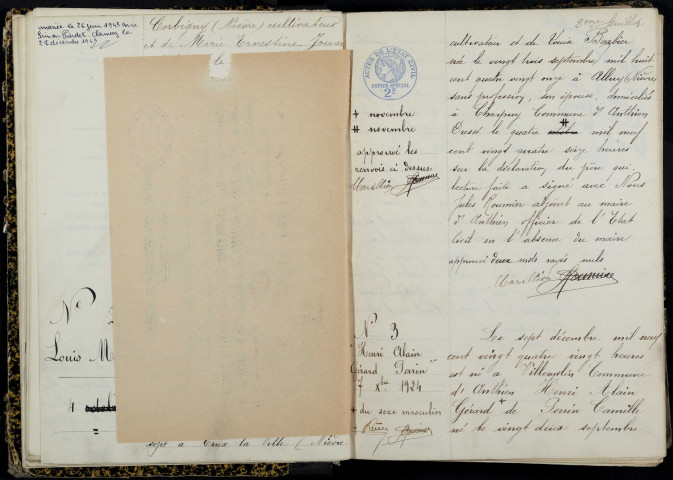 mariée le 26 juin 1943 avec
28 décembre 1945
Corbigny (Nièvre) cultivateur
et de Marie Ernestine
le
N°
Louis M
4
sept à Crux la Ville (Nièvre
2me feuillet
ACTES DE L'ETAT CIVIL
PAPIER SPECIAL
2F
+ novembre
# novembre
approuvé les
renvois ci dessus
N° 3
Henri Alain
Gérard Perrin
7 Xbre 1924
+ du sexe masculin
cultivateur et de Barbier
née le vingt trois septembre mil huit
cent quatre vingt onze à (Nièvre)
sans profession, son épouse, domiciliés
à Charpuy Commune d'Anthien
Dressé le quatre # mil neuf
cent vingt quatre seize heures
sur la déclaration du père qui,
lecture faite a signé avec Nous
Jules Roumier adjoint au maire
d'Anthien officier de l'Etat
Civil en l'absence du maire
approuvé deux mots rayés nuls
Le sept décembre mil neuf
cent vingt quatre vingt heures
est né à Villemolin Commune
d'Anthien Henri Alain
Gérard + de Perrin Camille
né le vingt deux septembre